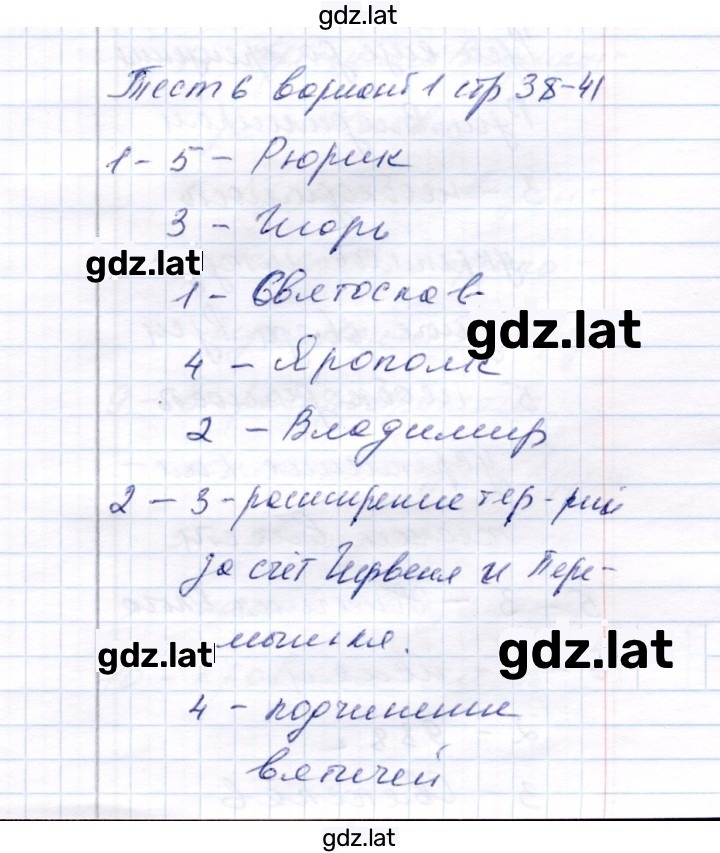 gdz.lat
Тест 6 вариант 1 стр 38-41
1 - 5 - Рюрик
3 - Игорь
gdz.lat
1 - Святослав
gdz.lat
4 - Ярополк
2 - Владимир
2 - 3 - расширение тер-рии
за счёт Червеня и Пере-
мышля.
gdz.lat
gdz.lat
4 - подчинение
вятичей
gdz.lat